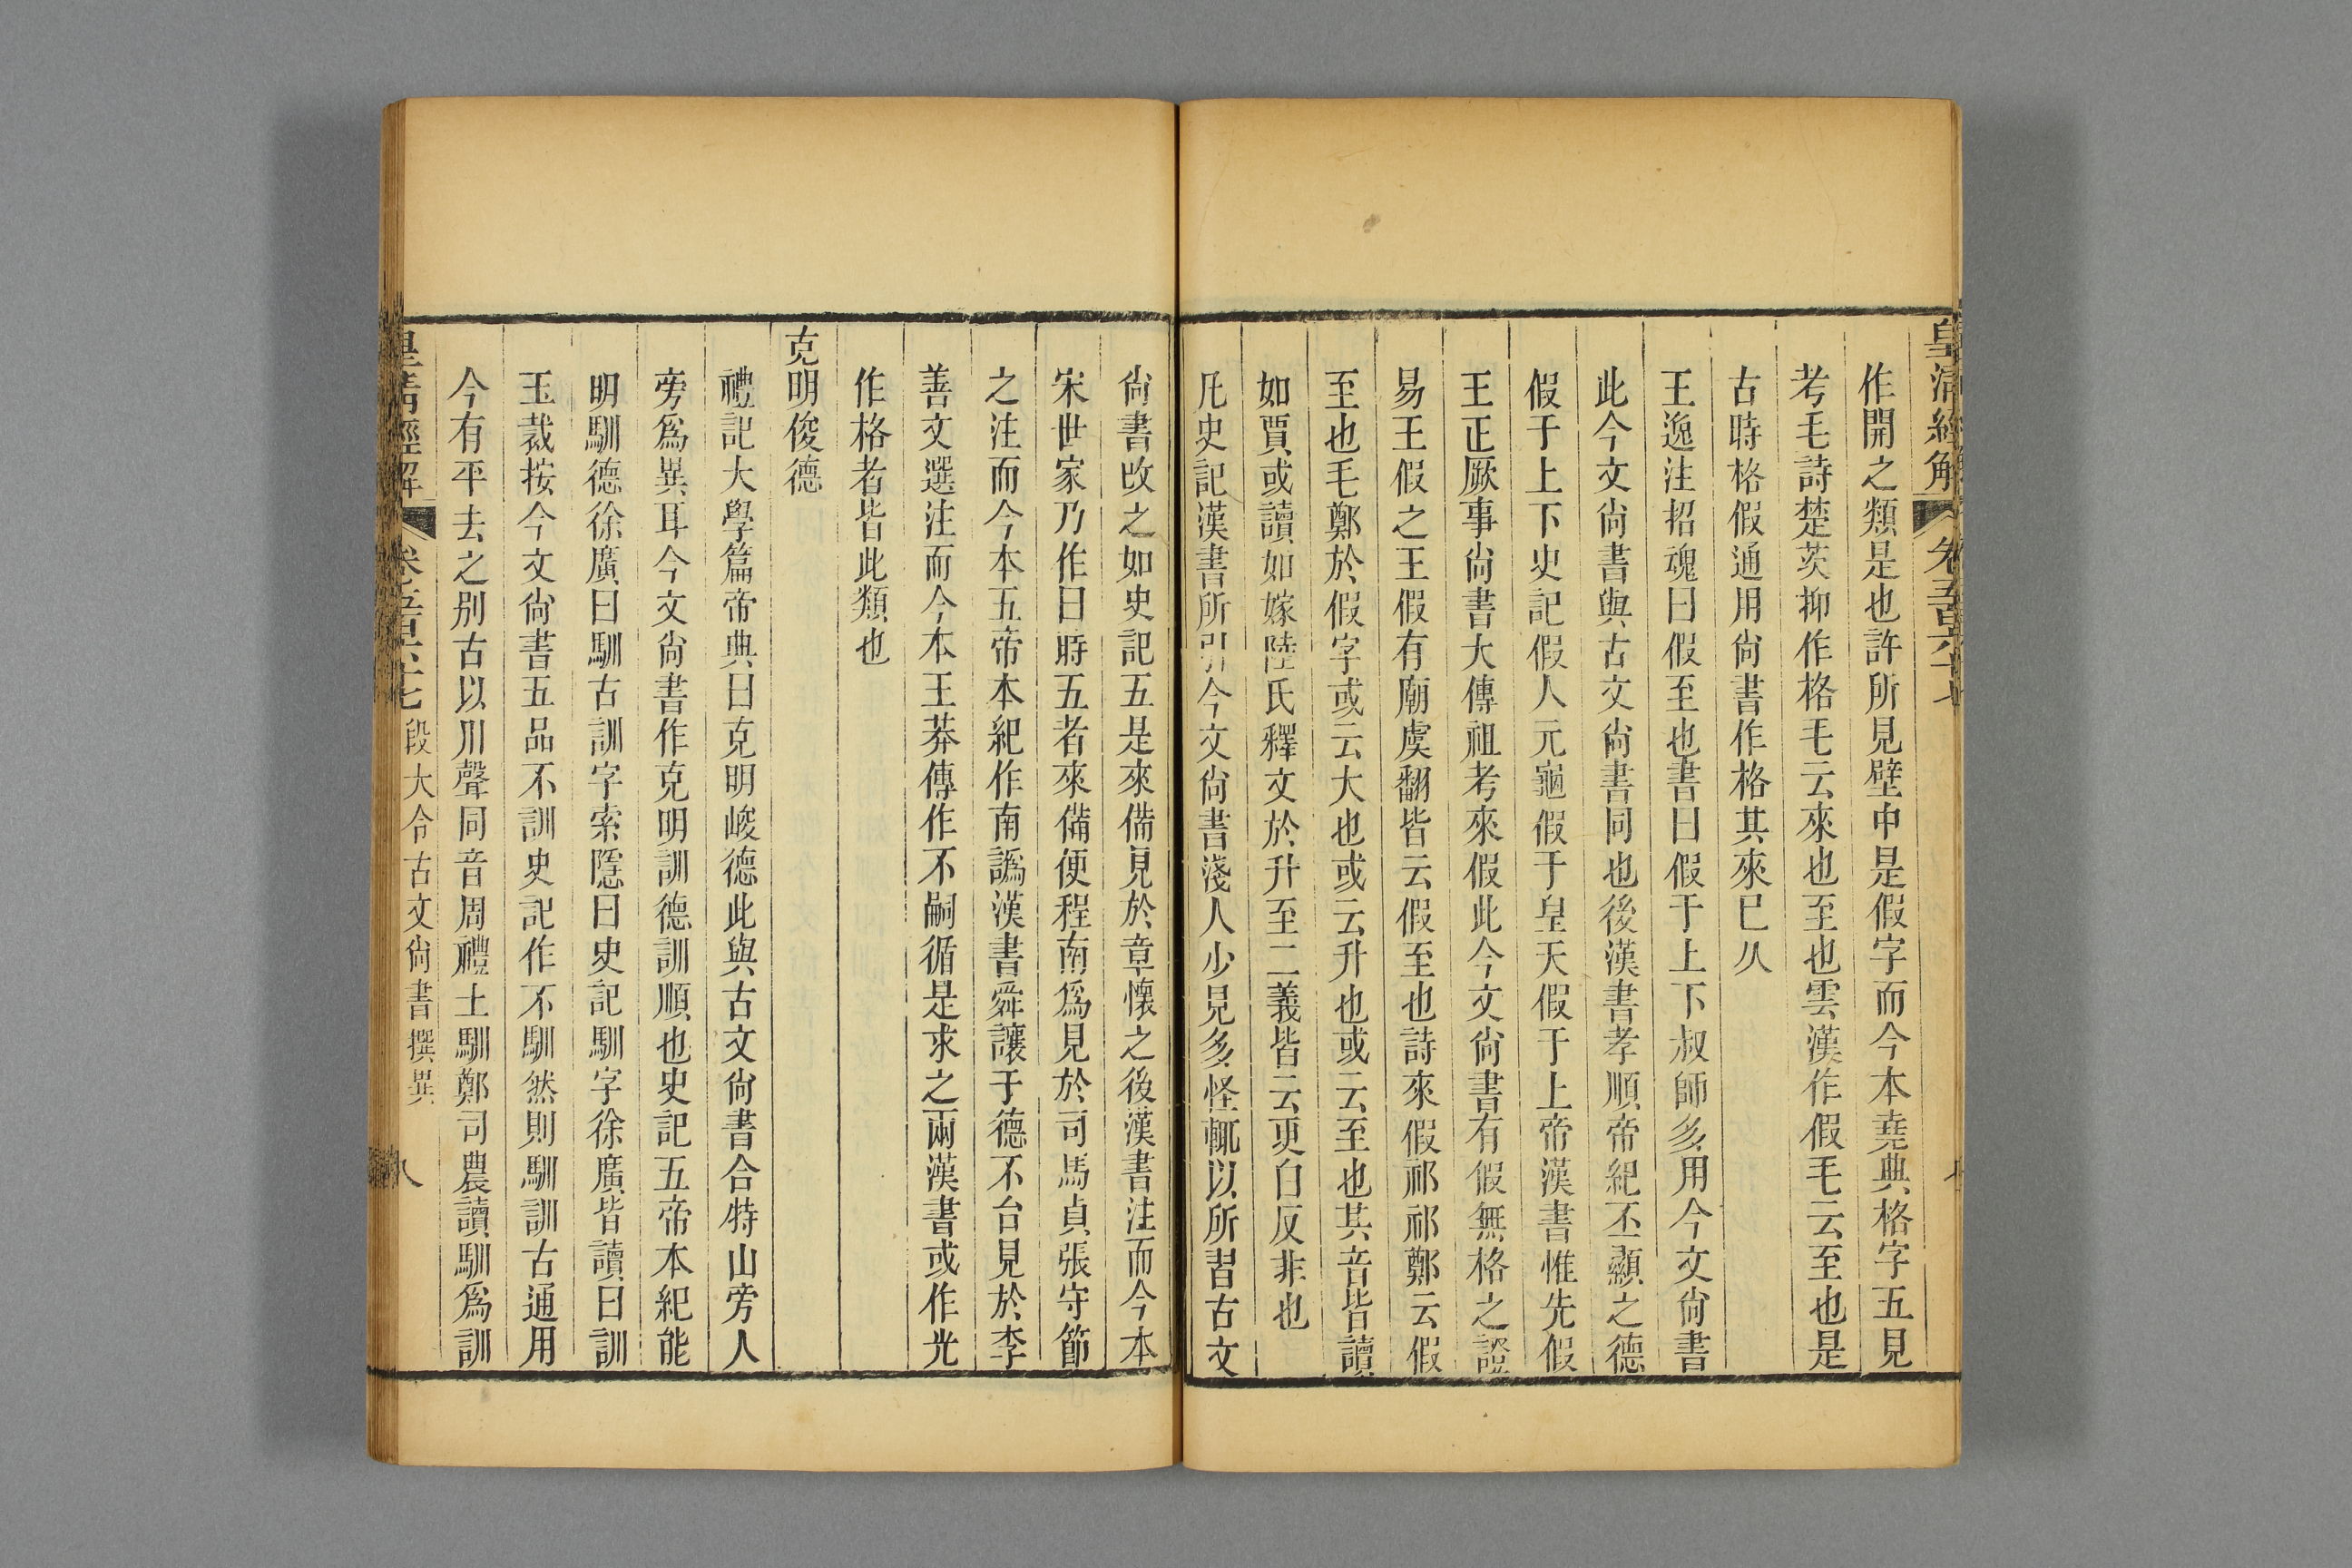 皇清經解
卷五百六十七
作開之類是也許所見壁中是假字而今本堯典格字五見
考毛詩楚茨抑作格毛云來也至也雲漢作假毛云至也是
古時格假通用尙書作格其來已久
王逸注招魂曰假至也書曰假于上下叔師多用今文尙書
此今文尙書與古文尙書同也後漢書孝順帝紀丕顯之德
假于上下史記假人元龜假于皇天假于上帝漢書惟先假
王正厥事尙書大傳祖考來假此今文尙書有假無格之證
易王假之王假有廟虞翻皆云假至也詩來假祁祁鄭云假
至也毛鄭於假字或云大也或云升也或云至也其音皆讀
如賈或讀如嫁陸氏釋文於升至二義皆云更白反非也
凡史記漢書所引今文尙書淺人少見多怪輒以所習古文
尙書改之如史記五是來備見於章懷之後漢書注而今本
宋世家乃作曰時五者來備便程南爲見於司馬貞張守節
之注而今本五帝本紀作南譌漢書舜讓于德不台見於李
善文選注而今本王莽傳作不嗣循是求之兩漢書或作光
作格者皆此類也
克明俊德
禮記大學篇帝典曰克明峻德此與古文尙書合特山旁人
旁爲異耳今文尙書作克明訓德訓順也史記五帝本紀能
明馴德徐廣曰馴古訓字索隱曰史記馴字徐廣皆讀曰訓
玉裁按今文尙書五品不訓史記作不馴然則馴訓古通用
今有平去之別古以川聲同音周禮土馴鄭司農讀馴爲訓
皇清經解
卷五百六十七
段大令古文尙書撰異
八